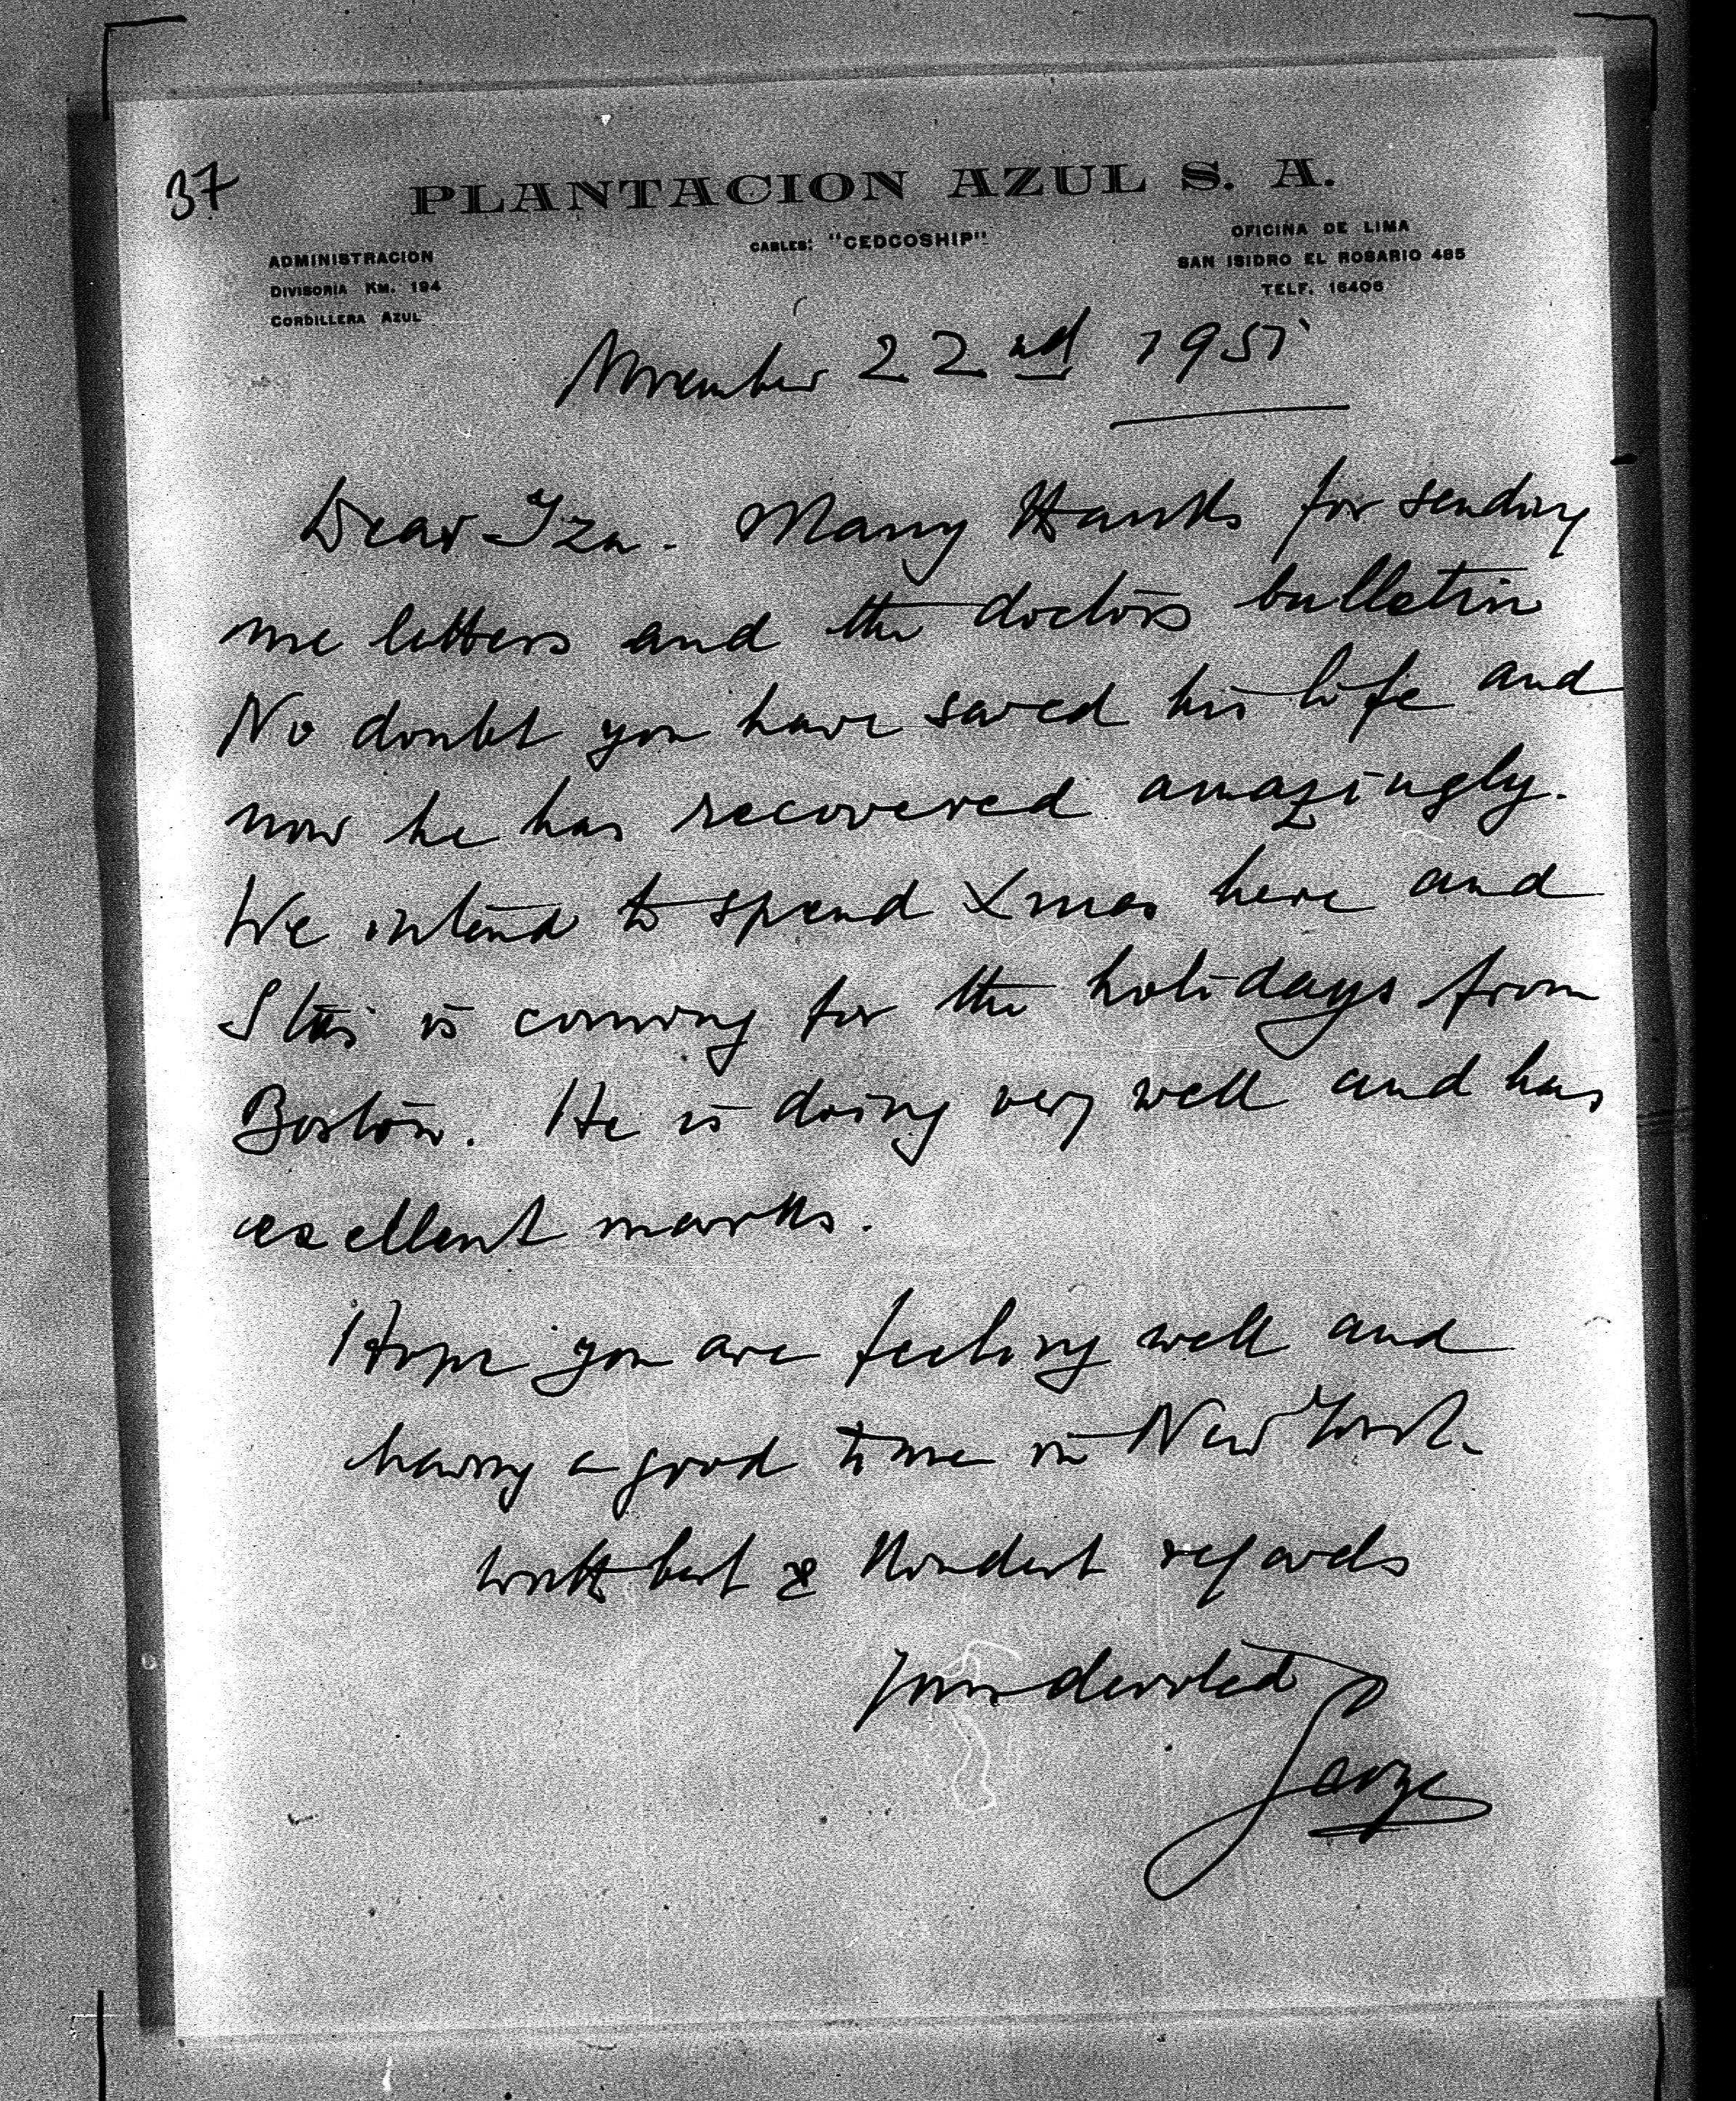 37
PLANTACION AZUL S. A.
CABLES: "CEDCOSHIP"
ADMINISTRACION
DIVISORIA KM. 194
CORDILLERA AZUL
OFICINA DE LIMA
SAN ISIDRO EL ROSARIO 485
TELF. 16406
November 22nd 1951
Dear Iza. Many thanks for sending
me letters and the doctors bulletin
No doubt you have saved his life and
now he has recovered amazingly.
We intend to spend Xmas here and
is coming for the holidays from
Boston. He is doing very well and has
excellent marks.
Hope you are feeling well and
having a good time in New York.
With best & kindest regards
Your devoted
George